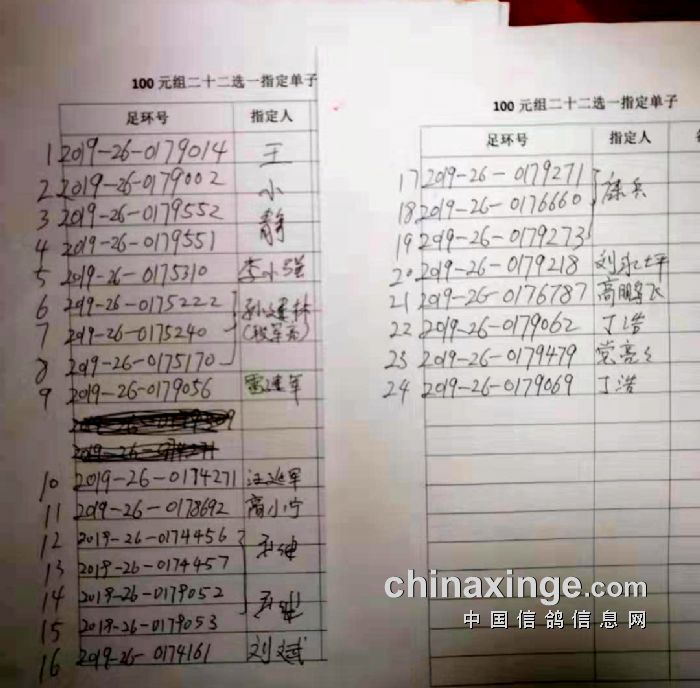 100元组二十二选一指定单子
足环号 指定人
1 2019-26-0179014 王
2 2019-26-0179002 小
3 2019-26-0179552 静
4 2019-26-0179551
5 2019-26-0175310 李小强
6 2019-26-0175222 孙建林
7 2019-26-0175240
8 2019-26-0175170
9 2019-26-0179056 雷建军
10 2019-26-0174271 汪延军
11 2019-26-0178692 高小宁
12 2019-26-0174456
13 2019-26-0174457
14 2019-26-0179052
15 2019-26-0179053
16 2019-26-0174161 刘斌
100元组二十二选一指定单子
足环号 指定人
17 2019-26-0179271
18 2019-26-0176660
19 2019-26-0179273
20 2019-26-0179218 刘永峰
21 2019-26-0176787 高鹏飞
22 2019-26-0179062 丁浩
23 2019-26-0179479 党亮亮
24 2019-26-0179069 丁浩
chinaxinge.com
中国信鸽信息网